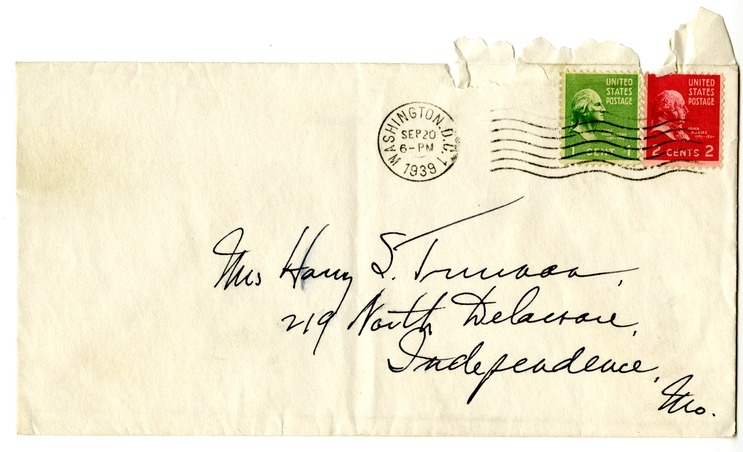 WASHINGTON, D.C. 1
SEP 20
6-PM
1939
UNITED
STATES
POSTAGE
1 CENT 1
UNITED
STATES
POSTAGE
JOHN
ADAMS
2 CENTS 2
Mrs Harry S. Truman,
219 North Delaware,
Independence,
Mo.